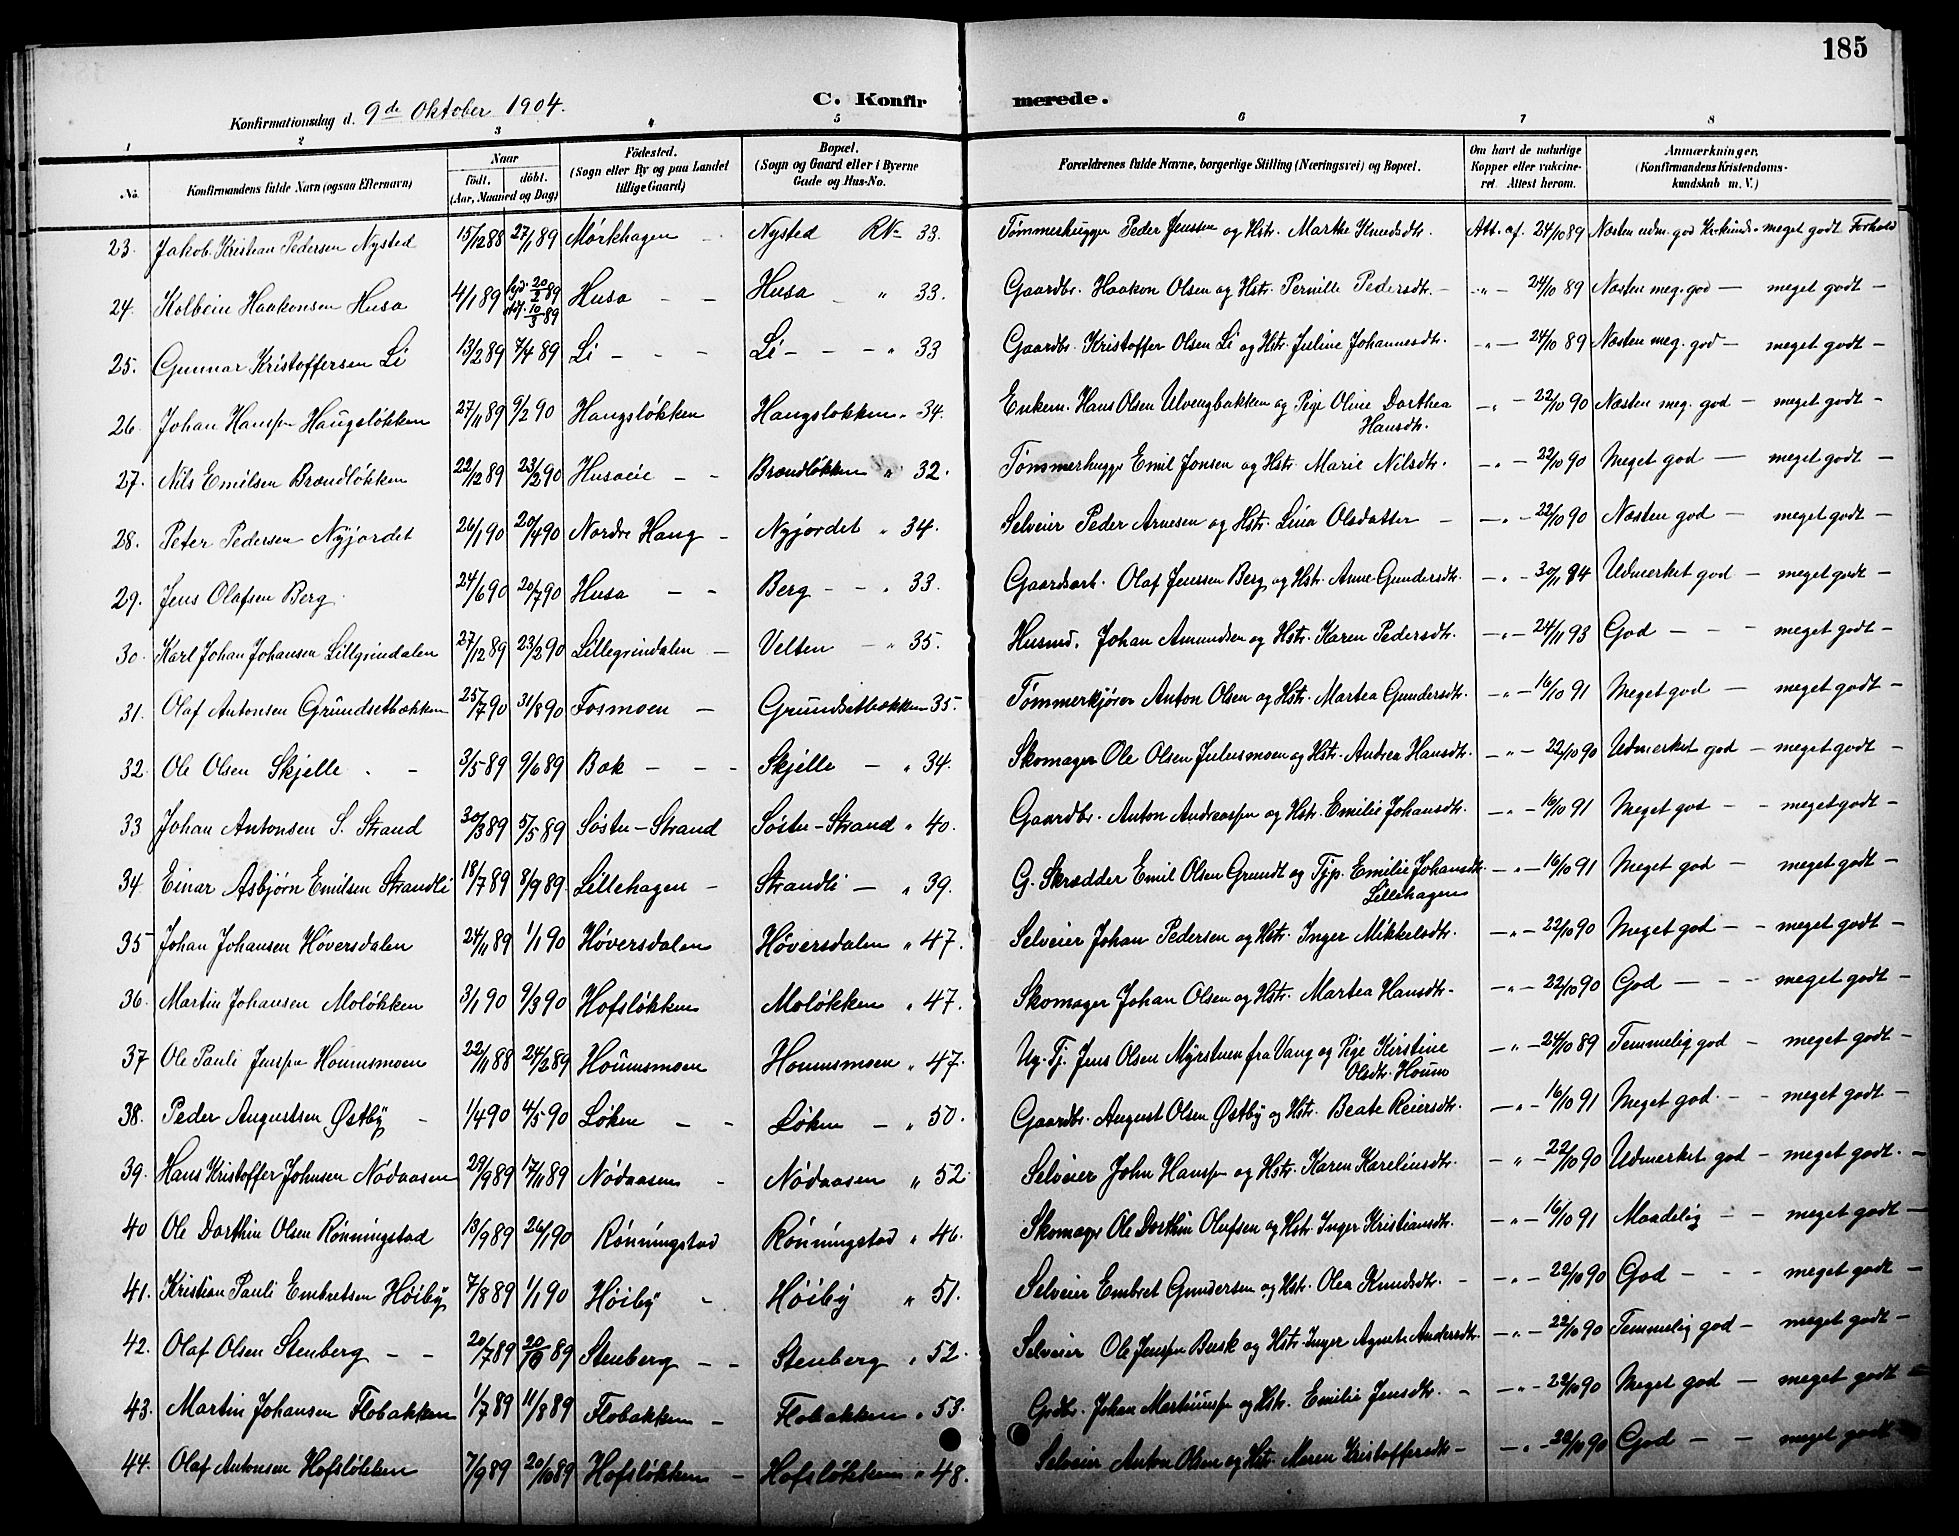 185
C. Konfir merede.
Konfirmationsdag d. 9de Oktober 1904.
1 2 3 4 5 6 7 8
No. Konfirmandens fulde Navn (ogsaa Efternavn) Naar født. døbt. (Aar, Maaned og Dag) Fødested. (Sogn eller By og paa Landet tillige Gaard) Bopæl. (Sogn og Gaard eller i Byerne Gade og Hus-No. Forældrenes fulde Navne, borgerlige Stilling (Næringsvei) og Bopæl. Om havt de naturlige Kopper eller vakcineret. Attest herom. Anmærkninger, (Konfirmandens Kristendomskundskab m. V.)
23. Jakob Kristian Pedersen Nysted 15/12 88 27/1 89 Mørkhagen - Nysted RN 33. Tømmerhugger Peder Jenssen og Hstr. Marthe Knudsdtr. Att. af. 24/10 89 Næsten udm. god Krkunds. meget godt Forhold
24. Kolbein Haakonsen Husa 4/1 89 hjd. 20/2 89 stf. 10/3 89 Husa - - Husa - " 33. Gaardbr. Haakon Olsen og Hstr. Pernille Pedersdtr. - - " - 24/10 89 Næsten meg. god - meget godt -
25. Gunnar Kristoffersen Li 13/2 89 7/4 89 Li - - - Li - - - " 33 Gaardbr. Kristoffer Olsen Li og Hstr. Juline Johannesdtr. - " - 24/10 89 Næsten meg. god - meget godt -
26. Johan Hanssen Haugsløkken 27/11 89 9/2 90 Haugsløkken Haugsløkken " 34. Enkem. Hans Olsen Ulvengbakken og Pige Oline Dorthea Hansdtr. - " - 22/10 90 Næsten meg. god - meget godt -
27. Nils Emilsen Brændløkken 22/12 89 23/2 90 Husaeie - - Brændløkken " 32. Tømmerhugger Emil Jonsen og Hstr. Marie Nilsdtr. - " - 22/10 90 Meget god - meget godt -
28. Peter Pedersen Nyjordet 26/1 90 20/4 90 Nordre Haug - Nyjordet " 34. Selveier Peder Arnesen og Hstr. Lina Olsdatter - - " - 22/10 90 Næsten god - meget godt -
29. Jens Olafsen Berg. 24/6 90 20/7 90 Husa - - Berg - - " 33. Gaardsarb. Olaf Jenssen Berg og Hstr. Anne Gundersdtr. - " - 30/11 94 Udmerket god - meget godt -
30. Karl Johan Johansen Lillgrindalen 27/12 89 23/2 90 Lillegrindalen - Velten - " 35. Husmd. Johan Amundsen og Hstr. Karen Pedersdtr. - " - 24/11 93 God - - - meget godt -
31. Olaf Antonsen Grundsetbækken 25/7 90 31/8 90 Fosmoen - Grundsetbækken 35. Tømmerkjører Anton Olsen og Hstr. Martea Gundersdtr. - " - 16/10 91 Meget god - meget godt -
32. Ole Olsen Skjelle - - 3/5 89 9/6 89 Bak - - - Skjelle - " 34. Skomager Ole Olsen Julusmoen og Hstr. Andrea Hansdtr. - " - 22/10 90 Udmerket god - meget godt -
33 Johan Antonsen S. Strand 30/3 89 5/5 89 Søstu-Strand Søstu-Strand " 40. Gaardbr. Anton Andreassen og Hstr. Emilie Johansdtr. - " - 16/10 91 Meget god - - meget godt -
34 Einar Asbjørn Emilsen Strandli 18/7 89 8/9 89. Lillehagen - Strandli - " 39. G. Skrædder Emil Olsen Grundt og Tjp. Emilie Johansdtr. Lillehagen - " - 16/10 91 Meget god - meget godt -
35 Johan Johansen Høversdalen 24/11 89 1/1 90 Høversdalen Høversdalen " 47. Selveier Johan Pedersen og Hstr. Inger Mikkelsdtr. - " - 22/10 90 Meget god - - meget godt -
36. Martin Johansen Moløkken 3/1 90 9/3 90 Hofsløkken Moløkken " 47. Skomager Johan Olsen og Hstr. Martea Hansdtr. - " - 22/10 90 God - - - meget godt -
37 Ole Pauli Jenssen Houmsmoen 22/11 88 24/2 89 Houmsmoen Houmsmoen " 47. Ug. Tj. Jens Olsen Myrstuen fra Vang og Pige Kirstine Olsdtr. Houm - " - 24/10 89 Temmelig god - meget godt -
38. Peder Augustsen Østby - 1/4 90 4/5 90 Løken - - Løken - " 50. Gaardbr. August Olsen Østby og Hstr. Beate Reiersdtr. - " - 16/10 91 Meget god. - - meget godt -
39. Hans Kristoffer Johnsen Nødaasen 29/9 89 17/11 89 Nødaasen - Nødaasen " 52 Selveier John Hanssen og Hstr. Karen Karelinsdtr. - " - 22/10 90 Udmerket god - meget godt. -
40 Ole Dorthin Olsen Rønningstad 13/9 89 26/1 90 Rønningstad Rønningstad " 46. Skomager Ole Dorthin Olufsen og Hstr. Inger Kristiansdtr. - " - 16/10 91 Maadelig - - meget godt -
41. Kristian Pauli Embretsen Høiby 7/8 89 1/1 90 Høiby - Høiby " 51. Selveier Embret Gundersen og Hstr. Olea Knudsdtr. - - " - 22/10 90 God - - - meget godt -
42. Olaf Olsen Stenberg - - 20/7 89 20/10 89 Stenberg - - Stenberg " 52. Selveier Ole Jenssen Busk og Hstr. Inger Agnete Andersdtr. - " - 22/10 90 Temmelig god - meget godt -
43. Martin Johansen Flobakken 1/7 89 11/8 89 Flobakken - Flobakken " 53. Grdbr. Johan Martinussen og Hstr. Emilie Jensdtr. - - " - 22/10 90 Meget god - meget godt -
44. Olaf Antonsen Hofsløkken 7/9 89 20/10 89 Hofsløkken - Hofsløkken " 48. Selveier Anton Olsen og Hstr. Maren Kristoffersdtr - - " - 22/10 90 God - - meget godt -